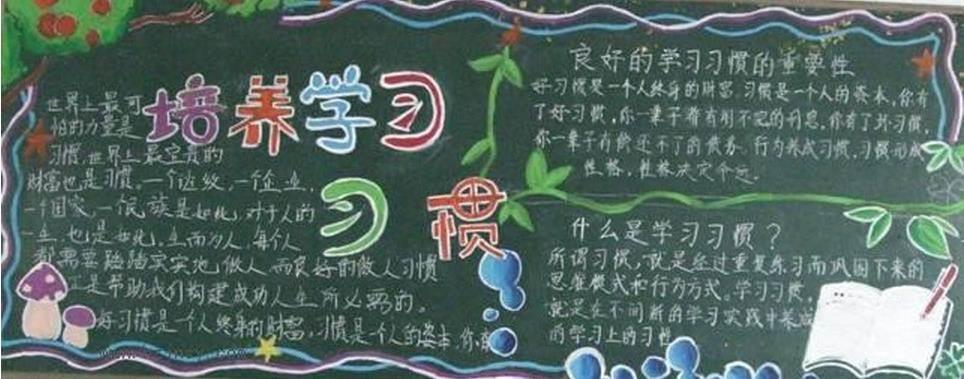 培养学习
习惯
世界上最可
怕的力量是
习惯,世界上最宝贵的
财富也是习惯。一个达级,一个企业,
一个国家,一民族是如此,对于人的
一生也是如此,生而为人,每个人
都需要踏踏实实地做人,而良好的做人习惯
正是帮助我们构建成功人生所必要的。
好习惯是个人终身的财富,习惯是个人的资本,你有
良好的学习习惯的重要性
好习惯是一个人终身的财富,习惯是一个人的资本,你有
了好习惯,你一辈子都有用不完的利息,你有了坏习惯,
你一辈子有还不了的债务。行为养成习惯,习惯形成
性格,性格决定命运。
什么是学习习惯?
所谓习惯,就是经过重复练习而巩固下来的
思维模式和行为方式。学习习惯,
就是在不间断的学习实践中养成
的学习上的习性